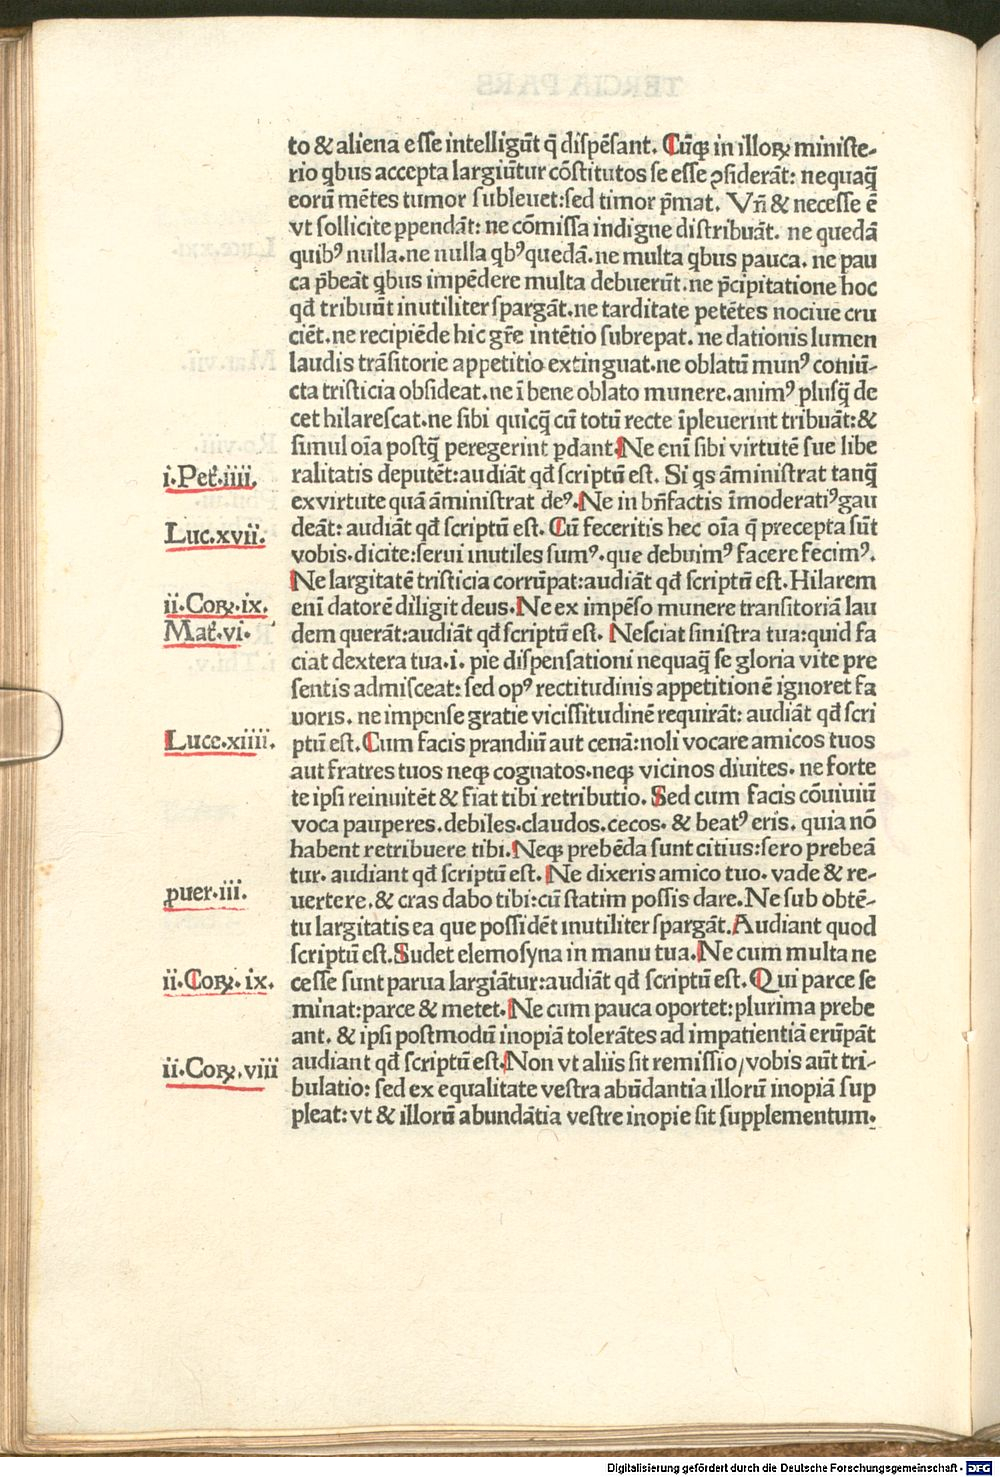 to & aliena esse intelligūt q̄ dispēsant. Cūq; in illoꝝ ministe-
rio qbus accepta largiūtur cōstitutos se esse ꝯsiderāt: nequaq̄
eorū mētes tumor subleuet:sed timor p̄mat. Vn̄ & necesse ē
vt sollicite ꝑpendāt: ne cōmissa indigne distribuāt. ne quedā
quibꝰ nulla.ne nulla qbꝰ quedā.ne multa qbus pauca. ne pau
ca p̄beāt qbus impēdere multa debuerūt.ne p̄cipitatione hoc
qd̄ tribuūt inutiliter spargāt.ne tarditate petētes nociue cru
ciēt.ne recipiēde hic gr̄e intētio subrepat. ne dationis lumen
laudis trāsitorie appetitio extinguat.ne oblatū munꝰ coniū-
cta tristicia obsideat.ne ī bene oblato munere.animꝰ plusq̄ de
cet hilarescat.ne sibi quicq̄ cū totū recte īpleuerint tribuāt:&
simul oīa postq̄ peregerint ꝑdant.Ne enī sibi virtutē sue libe
ralitatis deputēt:audiāt qd̄ scriptū est. Si qs āministrat tanq̄
i.Pet.iiii.
ex virtute quā āministrat deꝰ.Ne in bn̄factis īmoderatiꝰ gau
deāt: audiāt qd̄ scriptū est. Cū feceritis hec oīa q̄ precepta sūt
Luc.xvii.
vobis.dicite:serui inutiles sumꝰ.que debuimꝰ facere fecimꝰ.
Ne largitatē tristicia corrūpat:audiāt qd̄ scriptū est.Hilarem
enī datorē diligit deus.Ne ex impēso munere transitoriā lau
ii.Coꝝ.ix.
dem querāt:audiāt qd̄ scriptū est. Nesciat sinistra tua:quid fa
Mat.vi.
ciat dextera tua.i. pie dispensationi nequaq̄ se gloria vite pre
sentis admisceat: sed opꝰ rectitudinis appetitionē ignoret fa
uoris. ne impense gratie vicissitudinē requirāt: audiāt qd̄ scri
ptū est.Cum facis prandiū aut cenā:noli vocare amicos tuos
Luce.xiiii.
aut fratres tuos neq; cognatos.neq; vicinos diuites. ne forte
te ipsi reinuitēt & fiat tibi retributio. Sed cum facis cōuiuiū
voca pauperes.debiles.claudos.cecos. & beatꝰ eris. quia nō
habent retribuere tibi.Neq; prebēda sunt citius:sero prebeā
tur. audiant qd̄ scriptū est. Ne dixeris amico tuo. vade & re-
uertere.& cras dabo tibi:cū statim possis dare.Ne sub obtē-
ꝓuer.iii.
tu largitatis ea que possidēt inutiliter spargāt.Audiant quod
scriptū est.Sudet elemosyna in manu tua.Ne cum multa ne
cesse sunt parua largiātur:audiāt qd̄ scriptū est.Qui parce se
ii.Coꝝ.ix.
minat:parce & metet.Ne cum pauca oportet:plurima prebe
ant. & ipsi postmodū inopiā tolerātes ad impatientiā erūpāt
audiant qd̄ scriptū est.Non vt aliis sit remissio/vobis aūt tri-
ii.Coꝝ.viii
bulatio: sed ex equalitate vestra abūdantia illorū inopiā sup
pleat: vt & illorū abundātia vestre inopie sit supplementum.
Digitalisierung gefördert durch die Deutsche Forschungsgemeinschaft - DFG